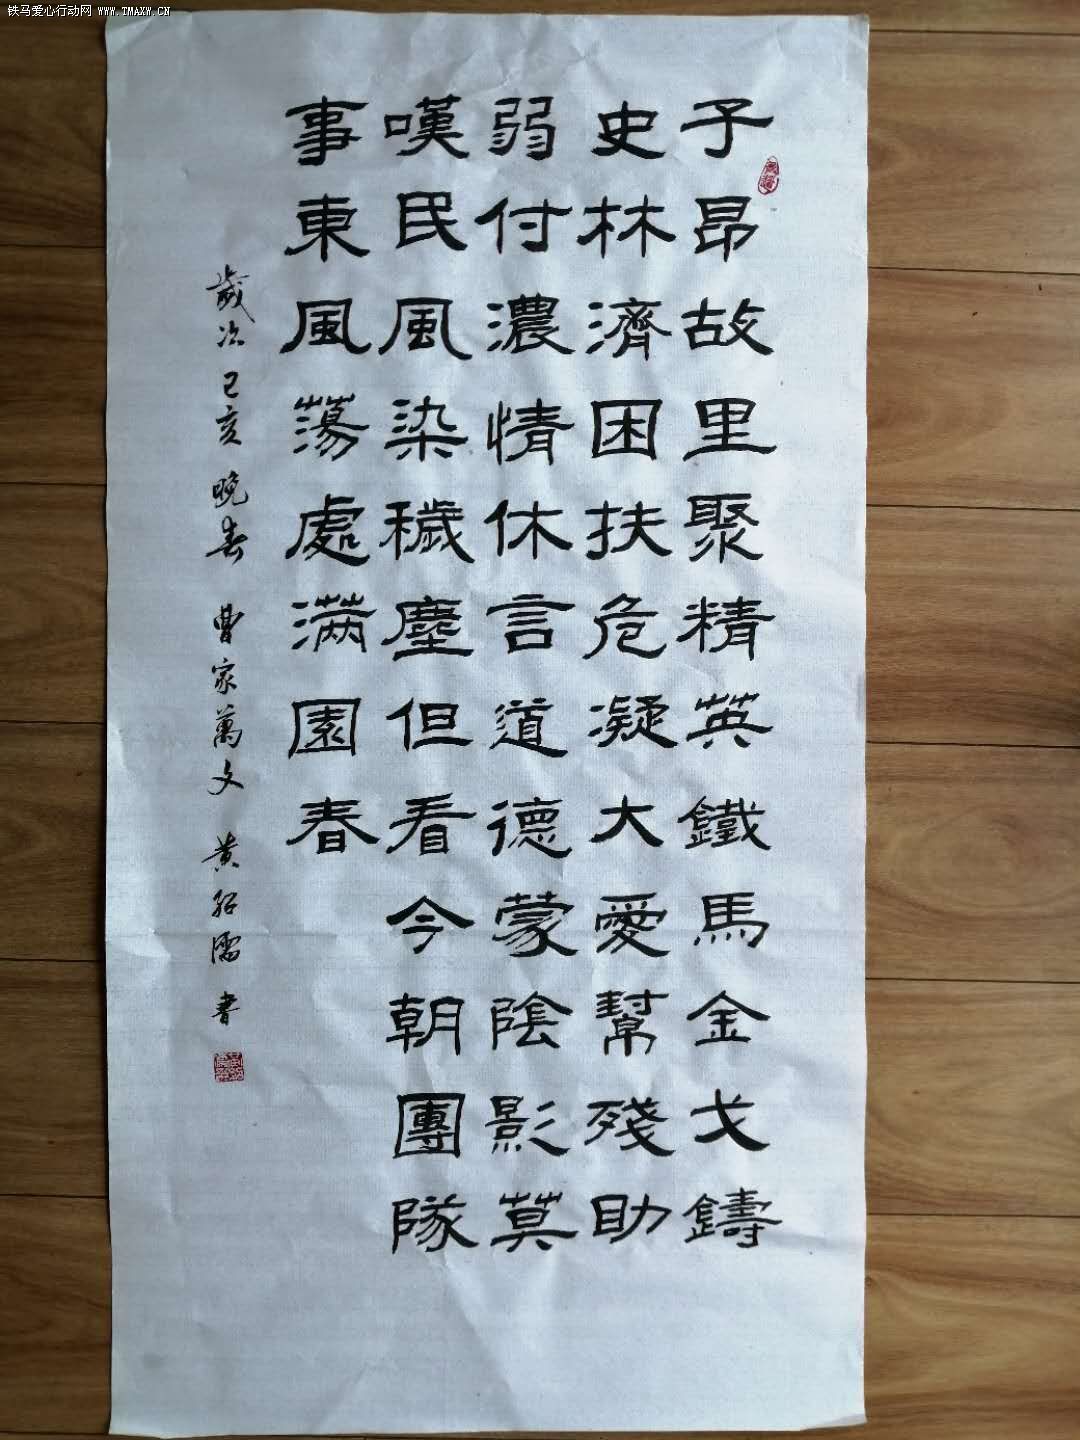 铁马爱心行动网 www.TMAXW.CN
子昂故里聚精英鐵馬金戈鑄
史林濟困扶危凝大愛幫殘助
弱付濃情休言道德蒙陰影莫
嘆民風染穢塵但看今朝團隊
事東風蕩處滿園春
歲次己亥晚春 曹家萬文 黄紹儒書